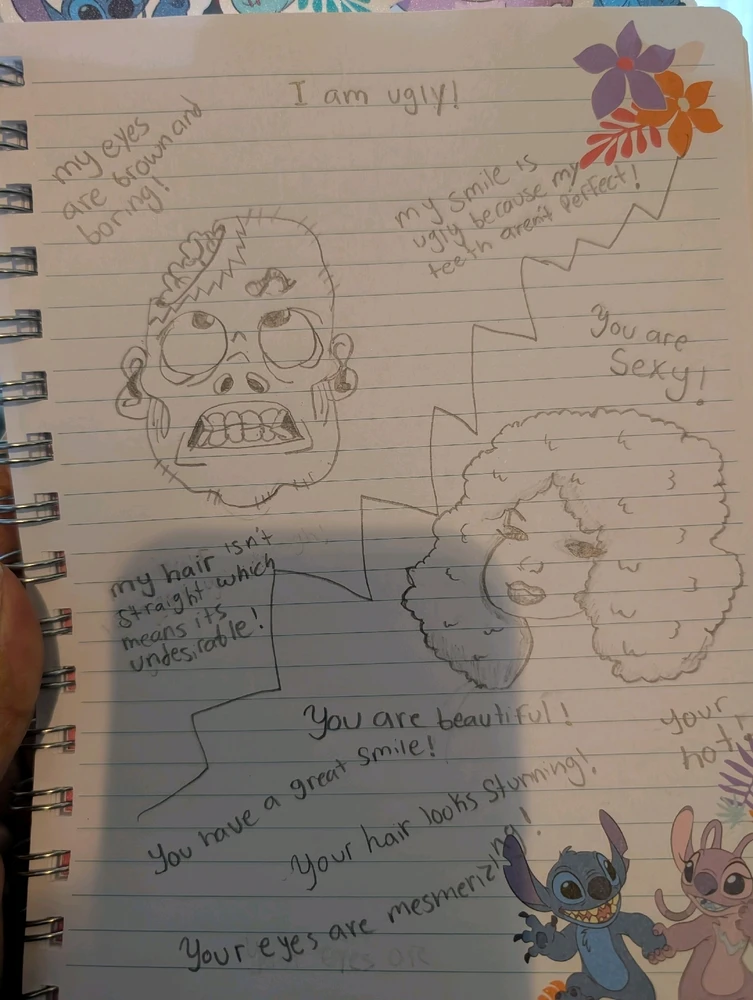 I am ugly!
my eyes
are brown and
boring!
my smile is
ugly because my
teeth aren't perfect!
You are
Sexy!
my hair isn't
straight which
means its
undesirable!
You are beautiful!
your
hot!
You have a great smile!
Your hair looks stunning!
Your eyes are mesmerizing!